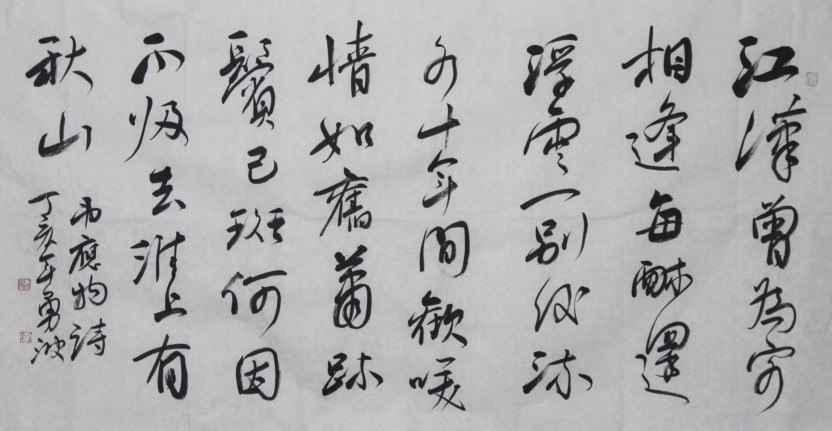 江漢曾為客
相逢每醉還
浮雲一别後流
水十年間歡咲
情如舊蕭疏
鬢已斑何因
不归去淮上有
秋山
韋應物詩
丁亥年勇波